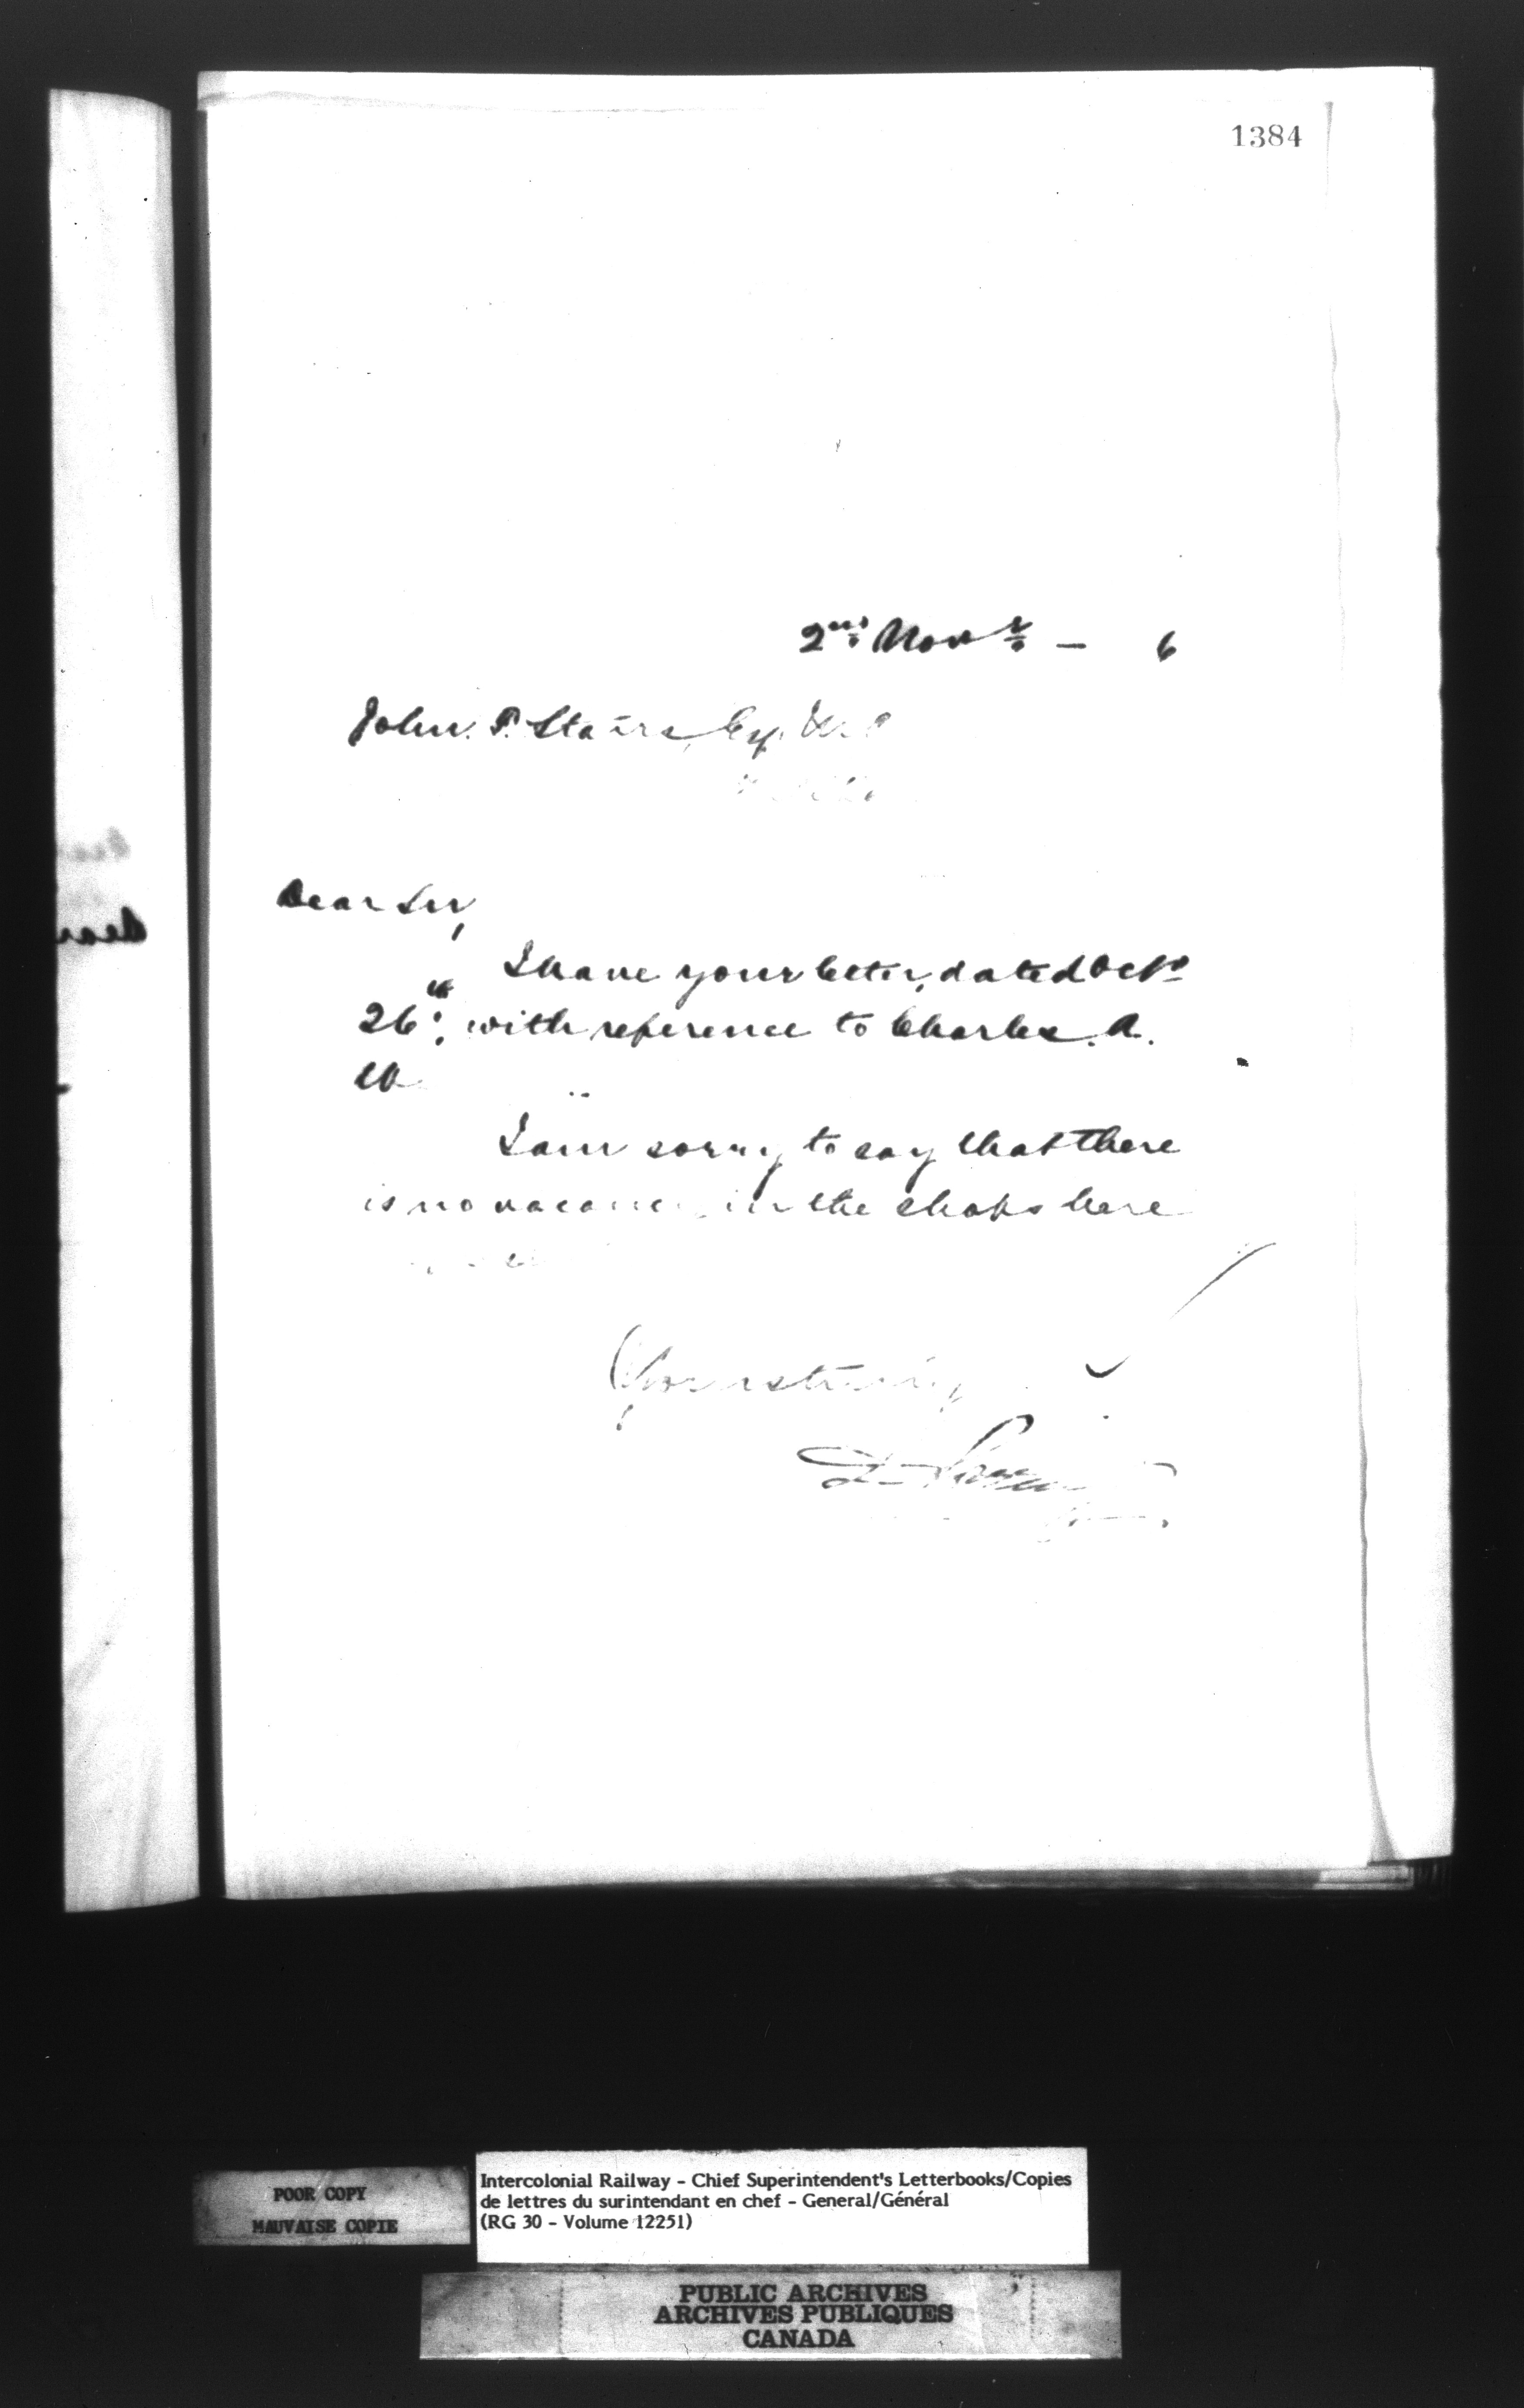 1384
2nd Novr. — 6
John. P. Stairs, Esq.
Dear Sir,
I have your letter, dated Octo
26th, with reference to Charles. A.
I am sorry to say that there
is no vacancy in the shops here
Yours truly
D. Pottinger
POOR COPY
MAUVAISE COPIE
Intercolonial Railway - Chief Superintendent's Letterbooks/Copies
de lettres du surintendant en chef - General/Général
(RG 30 - Volume 12251)
PUBLIC ARCHIVES
ARCHIVES PUBLIQUES
CANADA